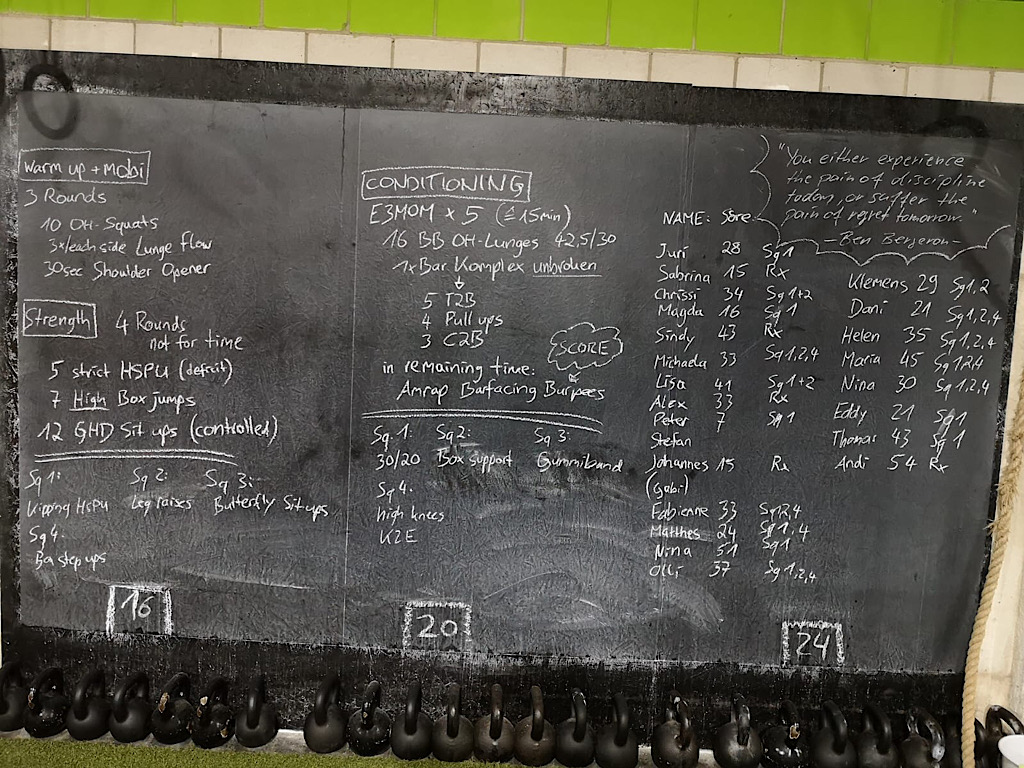 Warm up + mobi
3 Rounds
10 OH-Squats
3x/each side Lunge Flow
30sec Shoulder Opener
Strength
4 Rounds
not for time
5 strict HSPU (defizit)
7 High Box jumps
12 GHD Sit ups (controlled)
Sq 1: Sq 2: Sq 3:
Kipping HSPU Leg raises Butterfly Sit ups
Sq 4:
Box step ups
16
CONDITIONING
E3MOM x 5 (≙ 15min)
16 BB OH-Lunges 42,5/30
1x Bar Komplex unbroken
5 T2B
4 Pull ups
3 C2B
SCORE
in remaining time:
Amrap Barfacing Burpees
Sq. 1: Sq 2: Sq 3:
30/20 Box support Gummiband
Sq 4.
high knees
K2E
20
"You either experience
the pain of discipline
today, or suffer the
pain of regret tomorrow."
- Ben Bergeron -
NAME: Score
Juri 28 Sq 1
Sabrina 15 Rx
Chrissi 34 Sq 1+2
Magda 16 Sq 1
Sindy 43 Rx
Michaela 33 Sq 1,2,4
Lisa 41 Sq 1+2
Alex 33 Rx
Peter 7 Sq 1
Stefan
Johannes 15 Rx
(Gabi)
Fabienne 33 Sq 1,2,4
Matthes 24 Sq 1,4
Nina 51 Sq 1
Olli 37 Sq 1,2,4
Klemens 29 Sq 1,2
Dani 21 Sq 1,2,4
Helen 35 Sq 1,2,4
Maria 45 Sq 1 2 4
Nina 30 Sq 1,2,4
Eddy 21 Sq 1
Thomas 43 Sq 1
Andi 54 Rx
24